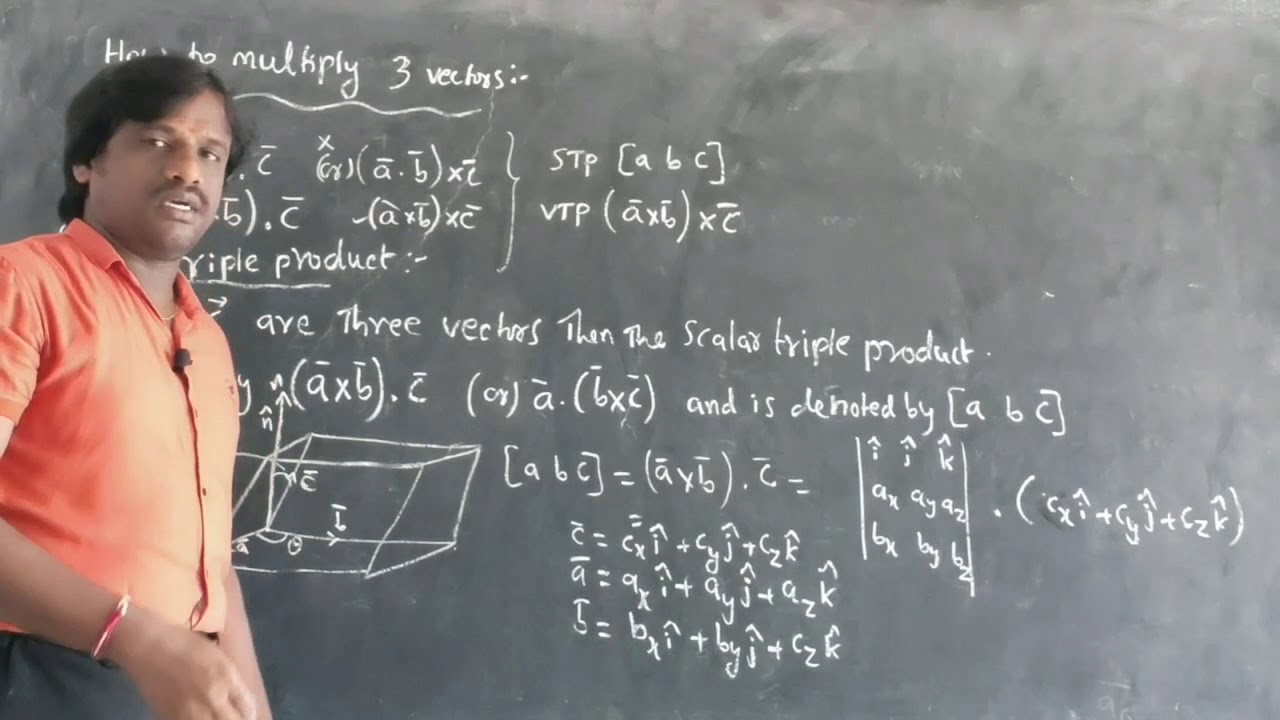 How to multiply 3 vectors:-
. c̄ (or) (ā . b̄) × c̄ } STP [a b c]
×
b̄) . c̄ -(ā × b̄) × c̄ VTP (ā × b̄) × c̄
riple product :-
are Three vectors Then The scalar triple product .
y (ā × b̄) . c̄ (or) ā . (b̄ × c̄) and is denoted by [a b c̄]
n̂
c̄
b̄
a θ
[a b c] = (ā × b̄) . c̄ = | î ĵ k̂ |
| aₓ a_y a_z | . (cₓ î + c_y ĵ + c_z k̂)
| bₓ b_y b_z |
c̄ = cₓ î + c_y ĵ + c_z k̂
ā = aₓ î + a_y ĵ + a_z k̂
b̄ = bₓ î + b_y ĵ + c_z k̂